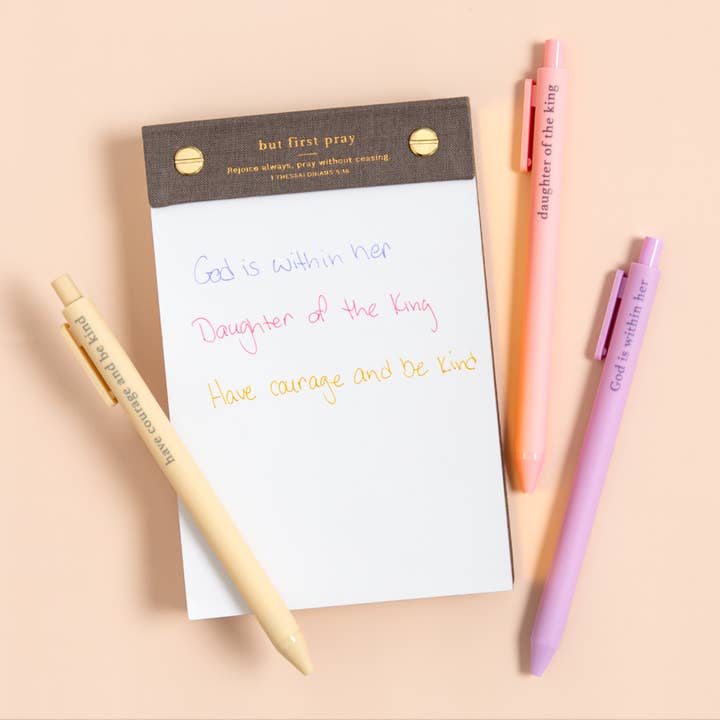 but first pray
Rejoice always, pray without ceasing.
1 THESSALONIANS 5:16
God is within her
Daughter of the King
Have courage and be kind
have courage and be kind
daughter of the king
God is within her